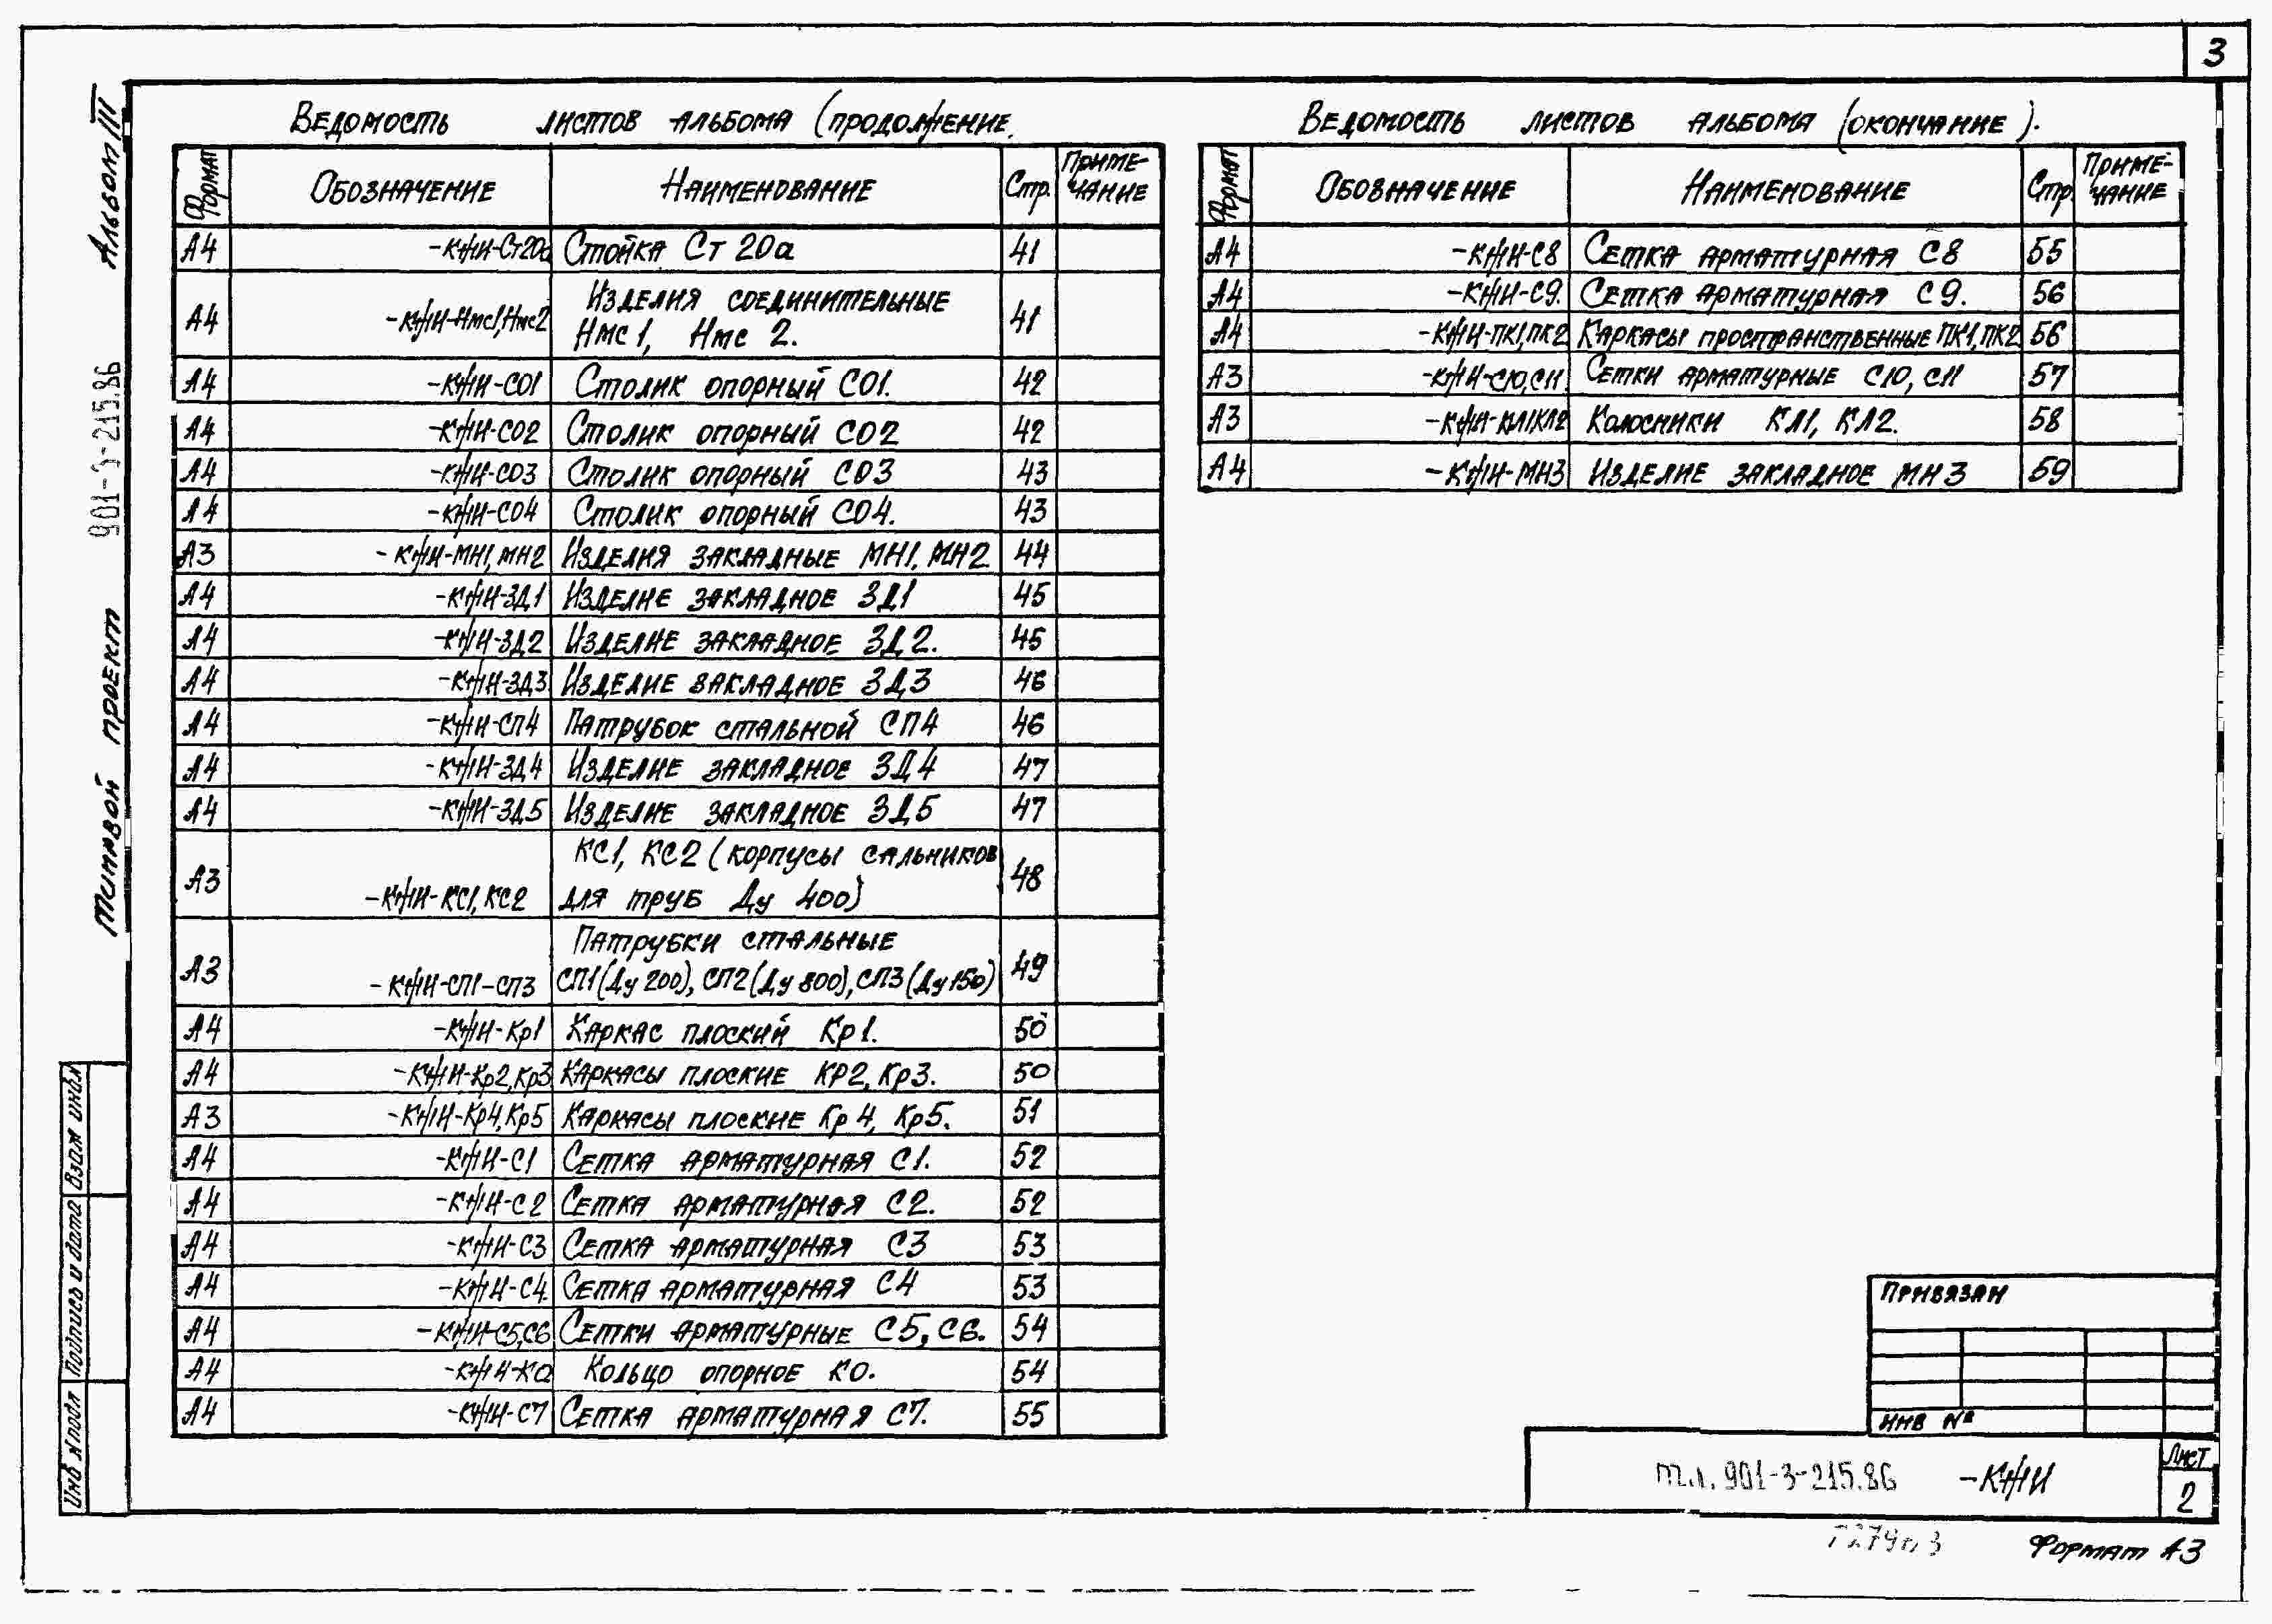 3
Альбом III
901-3-215.86
Типовой проект
Ведомость листов альбома (продолжение.
Формат Обозначение Наименование Стр. Приме-
чание
А4 -КЖИ-Ст20а Стойка Ст 20а 41
Изделия соединительные
А4 -КЖИ-Нмс1,Нмс2 Нмс 1, Нмс 2. 41
А4 -КЖИ-СО1 Столик опорный СО1. 42
А4 -КЖИ-СО2 Столик опорный СО2 42
А4 -КЖИ-СО3 Столик опорный СО3 43
А4 -КЖИ-СО4 Столик опорный СО4. 43
А3 -КЖИ-МН1, МН2 Изделия закладные МН1, МН2. 44
А4 -КЖИ-ЗД1 Изделие закладное ЗД1 45
А4 -КЖИ-ЗД2 Изделие закладное ЗД2. 45
А4 -КЖИ-ЗД3 Изделие закладное ЗД3 46
А4 -КЖИ-СП4 Патрубок стальной СП4 46
А4 -КЖИ-ЗД4 Изделие закладное ЗД4 47
А4 -КЖИ-ЗД5 Изделие закладное ЗД5 47
КС1, КС2 (корпусы сальников
А3 -КЖИ-КС1, КС2 для труб Ду 400) 48
Патрубки стальные
А3 -КЖИ-СП1-СП3 СП1(Ду 200), СП2(Ду 800), СП3(Ду150) 49
А4 -КЖИ-Кр1 Каркас плоский Кр1. 50
А4 -КЖИ-Кр2,Кр3 Каркасы плоские КР2, Кр3. 50
А3 -КЖИ-Кр4,Кр5 Каркасы плоские Кр 4, Кр5. 51
А4 -КЖИ-С1 Сетка арматурная С1. 52
А4 -КЖИ-С2 Сетка арматурная С2. 52
А4 -КЖИ-С3 Сетка арматурная С3 53
А4 -КЖИ-С4. Сетка арматурная С4 53
А4 -КЖИ-С5,С6 Сетки арматурные С5, С6. 54
А4 -КЖИ-КО Кольцо опорное КО. 54
А4 -КЖИ-С7 Сетка арматурная С7. 55
Ведомость листов альбома (окончание).
Формат Обозначение Наименование Стр. Приме-
чание
А4 -КЖИ-С8 Сетка арматурная С8 55
А4 -КЖИ-С9. Сетка арматурная С9. 56
А4 -КЖИ-ПК1,ПК2 Каркасы пространственные ПК1, ПК2 56
А3 -КЖИ-С10,С11 Сетки арматурные С10, С11 57
А3 -КЖИ-КЛ1КЛ2 Колосники КЛ1, КЛ2. 58
А4 -КЖИ-МН3 Изделие закладное МН3 59
Взам инв.№
Подпись и дата
Инв № подл
Привязан
Инв №
т.п. 901-3-215.86 -КЖИ
Лист
2
Формат А3